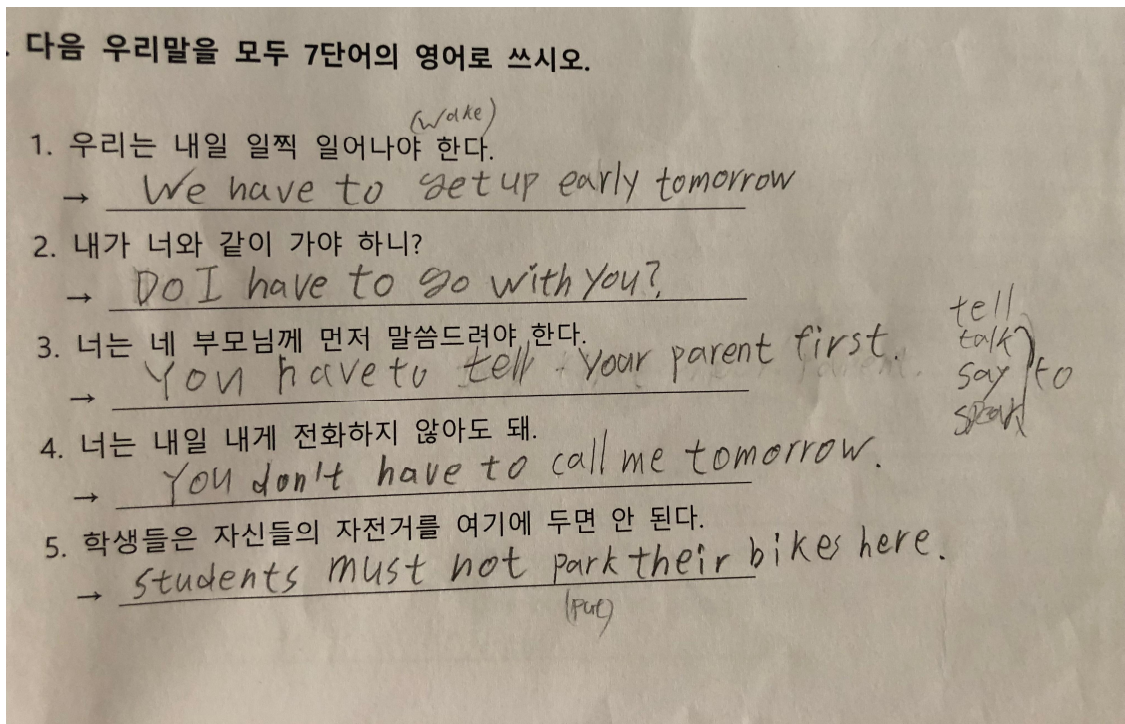 . 다음 우리말을 모두 7단어의 영어로 쓰시오.
(wake)
1. 우리는 내일 일찍 일어나야 한다.
→ We have to get up early tomorrow
2. 내가 너와 같이 가야 하니?
→ Do I have to go with you?
3. 너는 네 부모님께 먼저 말씀드려야 한다.
→ You have to tell your parent first.
tell
talk
say
speak
) to
4. 너는 내일 내게 전화하지 않아도 돼.
→ You don't have to call me tomorrow.
5. 학생들은 자신들의 자전거를 여기에 두면 안 된다.
→ students must not park their bikes here.
(put)